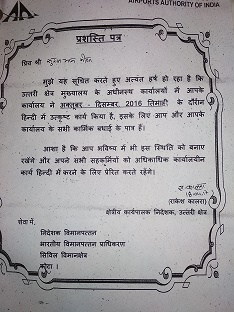 AIRPORTS AUTHORITY OF INDIA
प्रशस्ति पत्र
प्रिय श्री
मुझे यह सूचित करते हुए अत्यंत हर्ष हो रहा है कि
उत्तरी क्षेत्र मुख्यालय के अधीनस्थ कार्यालयों में आपके
कार्यालय ने अक्तूबर - दिसम्बर, 2016 तिमाही के दौरान
हिन्दी में उत्कृष्ट कार्य किया है, इसके लिए आप और आपके
कार्यालय के सभी कार्मिक बधाई के पात्र हैं।
आशा है कि आप भविष्य में भी इस स्थिति को बनाए
रखेंगे और अपने सभी सहकर्मियों को अधिकाधिक कार्यालयीन
कार्य हिन्दी में करने के लिए प्रेरित करते रहेंगे।
(राकेश कालरा)
क्षेत्रीय कार्यपालक निदेशक, उत्तरी क्षेत्र
सेवा में,
निदेशक विमानपत्तन
भारतीय विमानपत्तन प्राधिकरण
सिविल विमानक्षेत्र
कोटा।